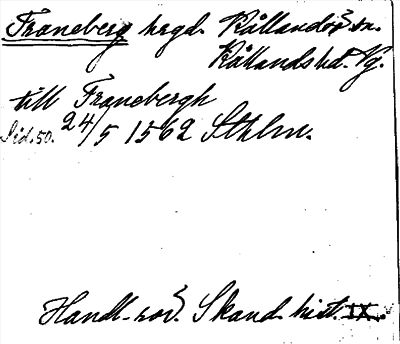 Traneberg hrgd. Kållandsö sn.
Kållands hd. Vg.
till Tranebergh
Sid. 50. 24/5 1562 Sthlm.
Handl. rör. Skand. hist. IX.